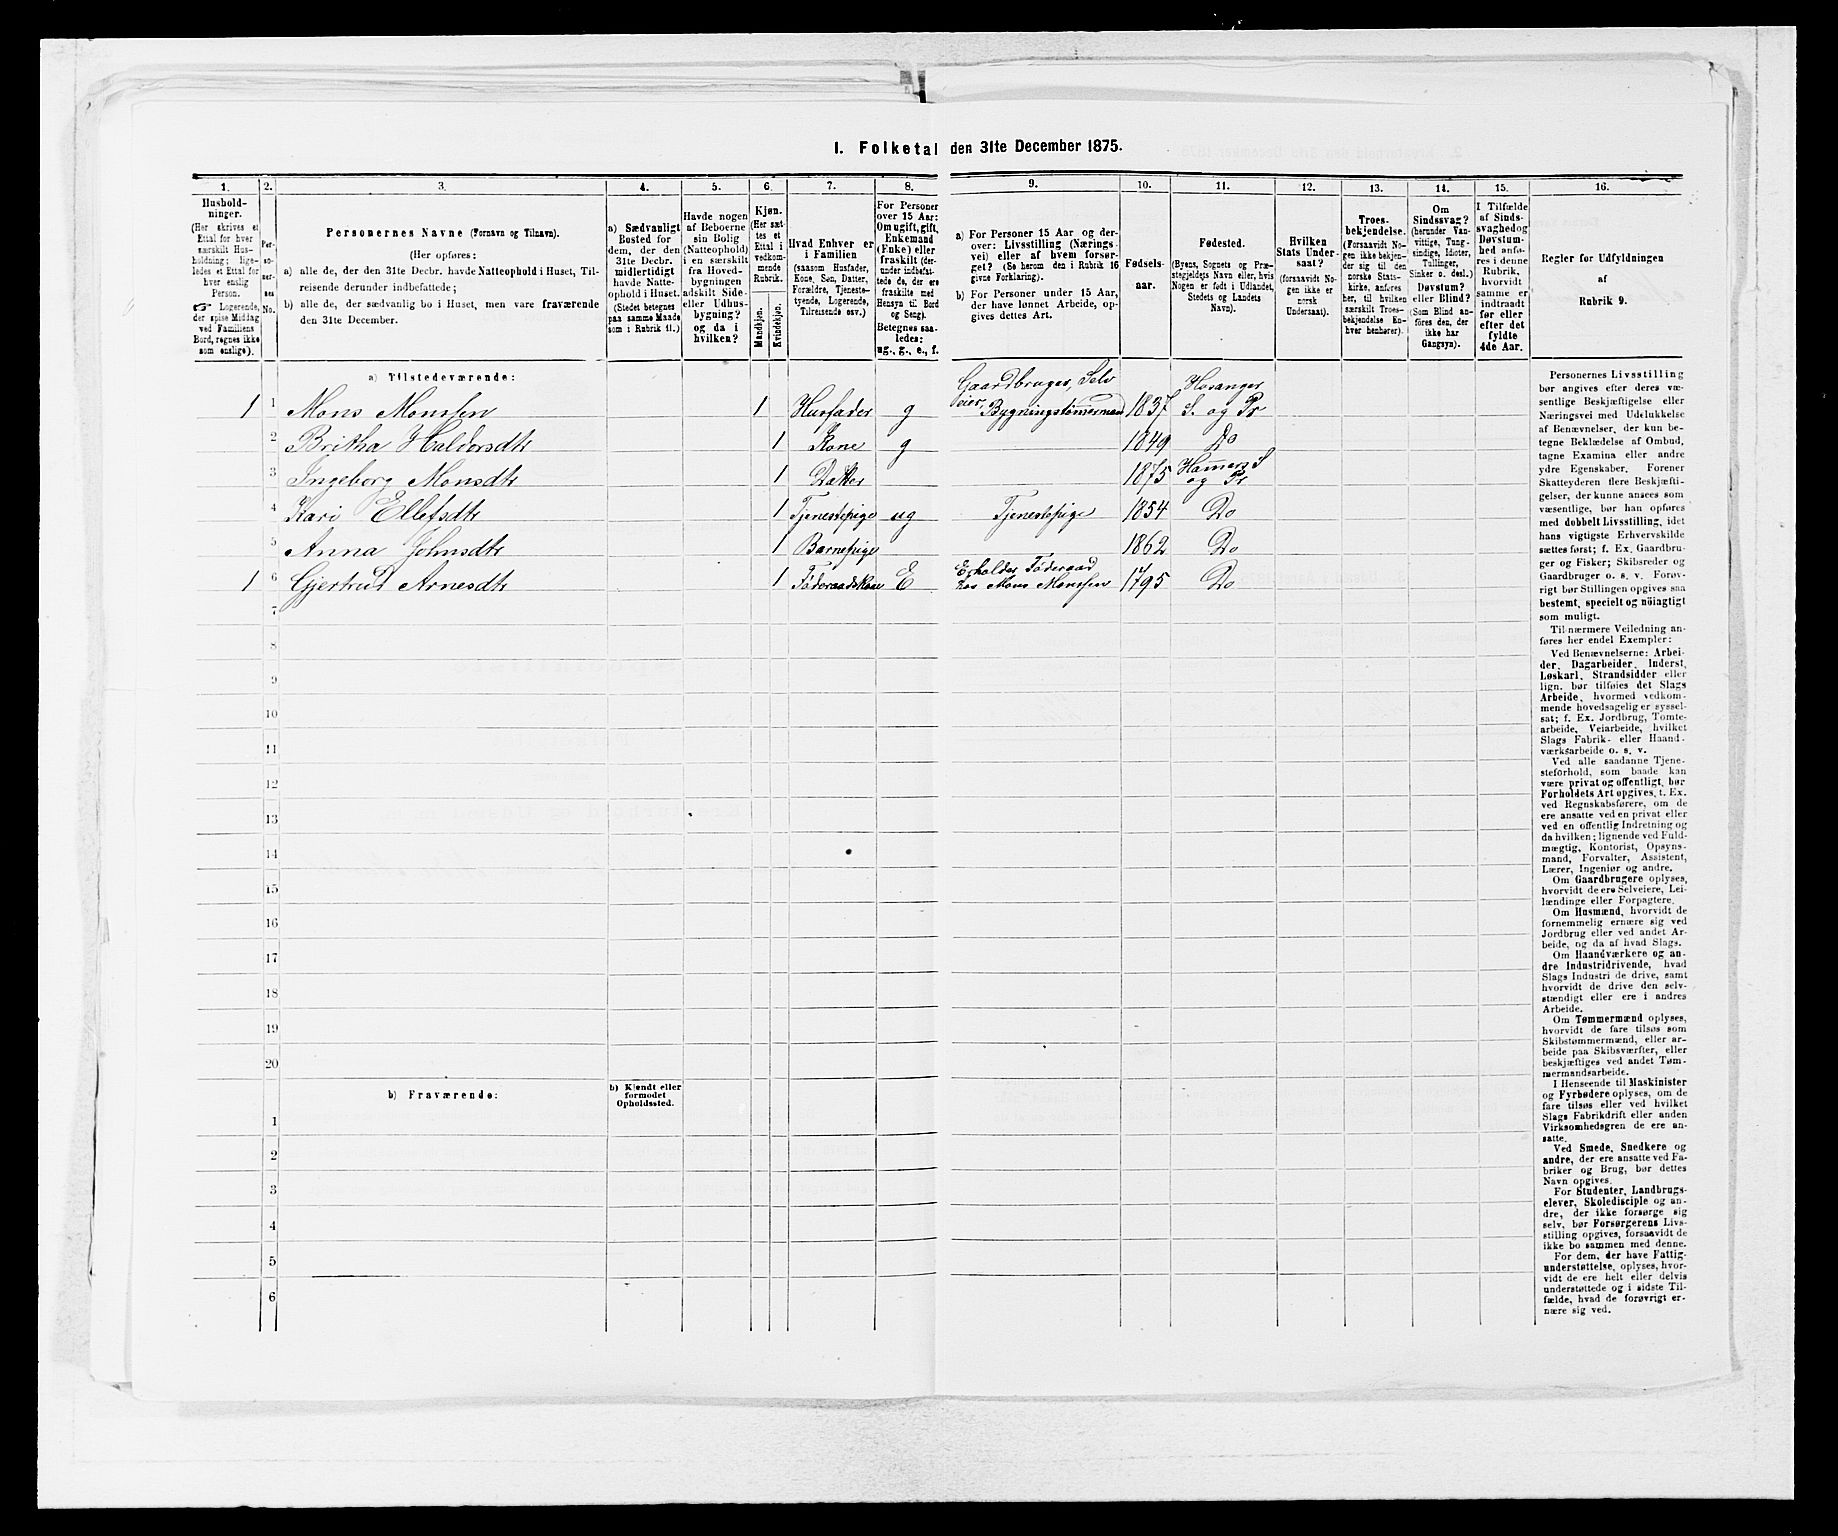 I. Folketal den 31te December 1875.
1. 2. 3. 4. 5. 6. 7. 8. 9. 10. 11. 12. 13. 14. 15. 16.
Hushold-
ninger.
(Her skrives et
Ettal for hver
særskilt Hus-
holdning; lige-
ledes et Ettal for
hver enslig
Person.
☞ Logerende,
der spise Middag
ved Familiens
Bord, regnes ikke
som enslige).
Per-
so-
ner-
nes
No.
Personernes Navne (Fornavn og Tilnavn).
(Her opføres:
a) alle de, der den 31te Decbr. havde Natteophold i Huset, Til-
reisende derunder indbefattede;
b) alle de, der sædvanlig bo i Huset, men vare fraværende
den 31te December.
a) Sædvanligt
Bosted for
dem, der den
31te Decbr.
midlertidigt
havde Natte-
ophold i Huset.
(Stedet betegnes
paa samme Maade
som i Rubrik 11.)
Havde nogen
af Beboerne
sin Bolig
(Natteophold)
i en særskilt
fra Hoved-
bygningen
adskilt Side-
eller Udhus-
bygning?
og da i
hvilken?
Kjøn.
(Her sæt-
tes et
Ettal i
vedkom-
mende
Rubrik.
Mandkjøn.
Kvindekjøn.
Hvad Enhver er
i Familien
(saasom Husfader,
Kone, Søn, Datter,
Forældre, Tjeneste-
tyende, Logerende,
Tilreisende osv.)
For Personer
over 15 Aar:
Om ugift, gift,
Enkemand
(Enke) eller
fraskilt (der-
under indbefat-
tede de, der ere
fraskilte med
Hensyn til Bord
og Seng).
Betegnes saa-
ledes:
ug., g., e., f.
a) For Personer 15 Aar og der-
over: Livsstilling (Nærings-
vei) eller af hvem forsør-
get? (Se herom den i Rubrik 16
givne Forklaring).
b) For Personer under 15 Aar,
der have lønnet Arbeide, op-
gives dettes Art.
Fødsels-
aar.
Fødested.
(Byens, Sognets og Præ-
stegjeldets Navn eller, hvis
Nogen er født i Udlandet,
Stedets og Landets
Navn).
Hvilken
Stats Under-
saat?
(forsaavidt No-
gen ikke er
norsk
Undersaat).
Troes-
bekjendelse.
(Forsaavidt No-
gen ikke bekjen-
der sig til den
norske Stats-
kirke, anføres
her, til hvilken
særskilt Troes-
bekjendelse En-
hver henhører).
Om
Sindssvag?
(herunder Van-
vittige, Tung-
sindige, Idioter,
Tullinger,
Sinker o. desl.)
Døvstum?
eller Blind?
(Som Blind an-
føres den, der
ikke har
Gangsyn).
I Tilfælde
af Sinds-
svaghed og
Døvstum-
hed anfø-
res i denne
Rubrik,
hvorvidt
samme er
indtraadt
før eller
efter det
fyldte
4de Aar.
Regler for Udfyldningen
af
Rubrik 9.
a) Tilstedeværende:
1 1 Mons Monssen 1 Husfader g Gaardbruger, Selv
eier, Bygningstømermand 1837 Hosanger
S. og Pr
2 Britha Haldorsdtr 1 Kone g 1849 Do
3 Ingeborg Monsdtr 1 Datter 1875 Hamers S
og Pr
4 Kari Ellefsdtr 1 Tjenestepige ug Tjenestepige 1854 Do
5 Anna Johnsdtr 1 Barnepige 1862 Do
1 6 Gjertrud Arnesdtr 1 Føderaadskone E Erholder Føderaad
hos Mons Monssen 1795 Do
7
8
9
10
11
12
13
14
15
16
17
18
19
20
b) Fraværende:
b) Kjendt eller
formodet
Opholdssted.
1
2
3
4
5
6
Personernes Livsstilling
bør angives efter deres væ-
sentlige Beskjæftigelse eller
Næringsvei med Udelukkelse
af Benævnelser, der kun be-
tegne Beklædelse af Ombud,
tagne Examina eller andre
ydre Egenskaber. Forener
Skatteyderen flere Beskjæfti-
gelser, der kunne ansees som
væsentlige, bør han opføres
med dobbelt Livsstilling, idet
hans vigtigste Erhvervskilde
sættes først; f. Ex. Gaardbru-
ger og Fisker; Skibsreder og
Gaardbruger o. s. v. Forøv-
rigt bør Stillingen opgives saa
bestemt, specielt og nöiagtigt
som muligt.
Til nærmere Veiledning an-
føres her endel Exempler:
Ved Benævnelserne: Arbei-
der, Dagarbeider, Inderst,
Løskarl, Strandsidder eller
lign. bør tilføies det Slags
Arbeide, hvormed vedkom-
mende hovedsagelig er syssel-
sat; f. Ex. Jordbrug, Tomte-
arbeide, Veiarbeide, hvilket
Slags Fabrik- eller Haand-
værksarbeide o. s. v.
Ved alle saadanne Tjene-
steforhold, som baade kan
være privat og offentligt, bør
Forholdets Art opgives, t. Ex.
ved Regnskabsførere, om de
ere ansatte ved en privat eller
ved en offentlig Indretning og
da hvilken; lignende ved Fuld-
mægtig, Kontorist, Opsyns-
mand, Forvalter, Assistent,
Lærer, Ingeniør og andre.
Om Gaardbrugere oplyses,
hvorvidt de ere Selveiere, Lei-
lændinge eller Forpagtere.
Om Husmænd, hvorvidt de
fornemmelig ernære sig ved
Jordbrug eller ved andet Ar-
beide, og da af hvad Slags.
Om Haandværkere og an-
dre Industridrivende, hvad
Slags Industri de drive, samt
hvorvidt de drive den selv-
stændigt eller ere i andres
Arbeide.
Om Tømmermænd oplyses,
hvorvidt de fare tilsøs som
Skibstømmermænd, eller ar-
beide paa Skibsværfter, eller
beskjæftiges ved andet Tøm-
mermandsarbeide.
I Henseende til Maskinister
og Fyrbødere oplyses, om de
fare tilsøs eller ved hvilket
Slags Fabrikdrift eller anden
Virksomhedsgren de ere an-
satte.
Ved Smede, Snedkere og
andre, der ere ansatte ved Fa-
briker og Brug, bør dettes
Navn opgives.
For Studenter, Landbrugs-
elever, Skoledisciple og an-
dre, der ikke forsørge sig
selv, bør Forsørgerens Livs-
stilling opgives, forsaavidt de
ikke bo sammen med denne.
For dem, der have Fattig-
understøttelse, oplyses, hvor-
vidt de ere helt eller delvis
understøttede og i sidste Til-
fælde, hvad de forøvrigt er-
nære sig ved.